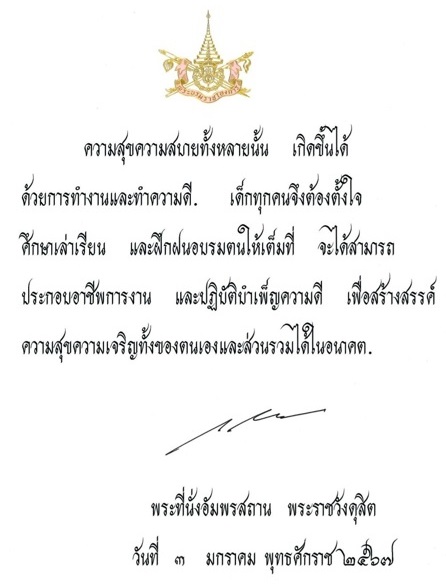 ความสุขความสบายทั้งหลายนั้น เกิดขึ้นได้
ด้วยการทำงานและทำความดี. เด็กทุกคนจึงต้องตั้งใจ
ศึกษาเล่าเรียน และฝึกฝนอบรมตนให้เต็มที่ จะได้สามารถ
ประกอบอาชีพการงาน และปฏิบัติบำเพ็ญความดี เพื่อสร้างสรรค์
ความสุขความเจริญทั้งของตนเองและส่วนรวมได้ในอนาคต.
พระที่นั่งอัมพรสถาน พระราชวังดุสิต
วันที่ ๓ มกราคม พุทธศักราช ๒๕๖๗